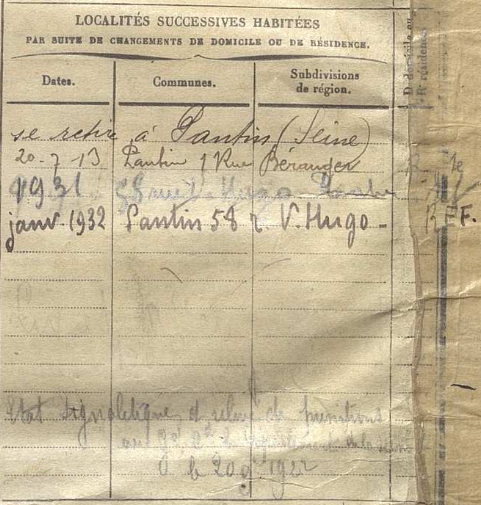 LOCALITÉS SUCCESSIVES HABITÉES
PAR SUITE DE CHANGEMENTS DE DOMICILE OU DE RÉSIDENCE.
Dates. Communes. Subdivisions
de région.
se retire à Pantin (Seine)
20-7-13 Pantin 1 Rue Béranger
1931 58 rue V. Hugo Pantin
janv. 1932 Pantin 58 r. V. Hugo -
Etat signalétique et relevé de punitions
le 20 9 1922